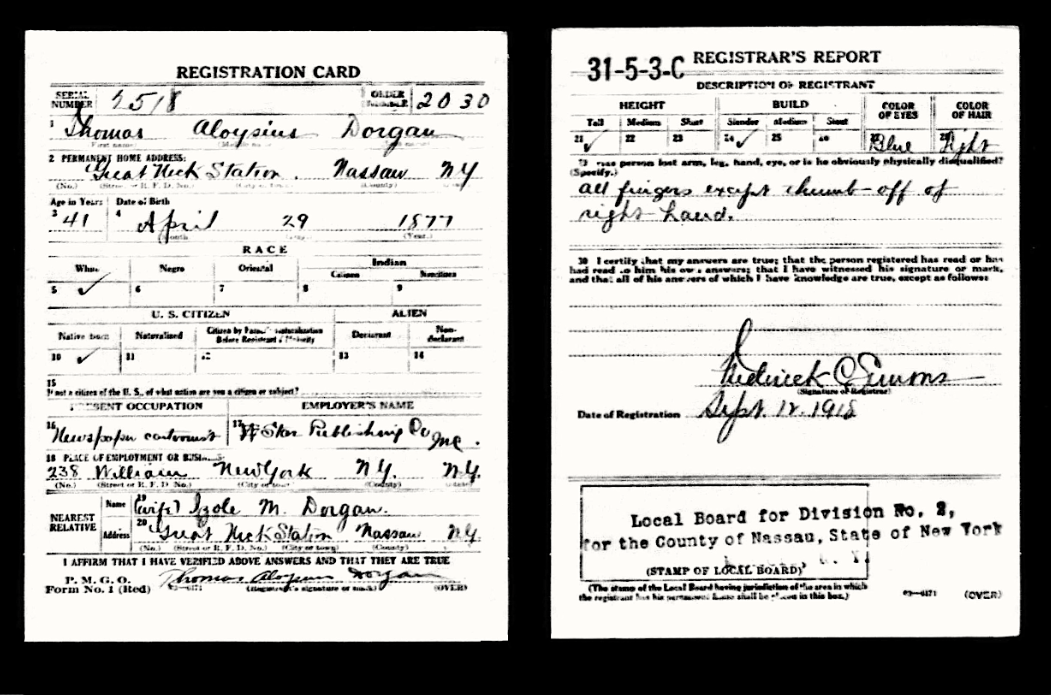 REGISTRATION CARD
SERIAL NUMBER 2518 ORDER NUMBER 2030
1 Thomas Aloysius Dorgan
First name
2 PERMANENT HOME ADDRESS:
Great Neck Station. Nassau NY
(No.) (Street or R. F. D. No.) (City or town) (County) (State)
Age in Years Date of Birth
3 41 4 April 29 1877
(Month) (Day) (Year.)
RACE
White Negro Oriental Indian
Citizen Noncitizen
5 ✓ 6 7 8 9
U. S. CITIZEN ALIEN
Native Born Naturalized Citizen by Father's Naturalization Before Registrant's Majority Declarant Non-declarant
10 ✓ 11 12 13 14
15
If not a citizen of the U. S., of what nation are you a citizen or subject?
PRESENT OCCUPATION EMPLOYER'S NAME
16 Newspaper cartoonist 17 Star Publishing Co Inc.
18 PLACE OF EMPLOYMENT OR BUSINESS:
238 William New York N Y. N Y.
(No.) (Street or R. F. D. No.) (City or town) (County) (State)
NEAREST RELATIVE
Name 19 (wife) Izole M. Dorgan.
Address 20 Great Neck Station Nassau NY.
(No.) (Street or R. F. D. No.) (City or town) (County)
I AFFIRM THAT I HAVE VERIFIED ABOVE ANSWERS AND THAT THEY ARE TRUE
P. M. G. O. Thomas Aloysius Dorgan
Form No. 1 (Red) 03—6171 (Registrant's signature or mark) (OVER)
31-5-3-C REGISTRAR'S REPORT
DESCRIPTION OF REGISTRANT
HEIGHT BUILD COLOR OF EYES COLOR OF HAIR
Tall Medium Short Slender Medium Stout
21 ✓ 22 23 24 ✓ 25 26 27 Blue 28 Light
29 Has person lost arm, leg, hand, eye, or is he obviously physically disqualified?
(Specify.)
all fingers except thumb off of
right hand.
30 I certify that my answers are true; that the person registered has read or has
had read to him his own answers; that I have witnessed his signature or mark,
and that all of his answers of which I have knowledge are true, except as follows:
Simons
(Signature of Registrar)
Date of Registration Sept. 12. 1918
Local Board for Division No. 2,
for the County of Nassau, State of New York
(STAMP OF LOCAL BOARD)
(The stamp of the Local Board having jurisdiction of the area in which
the registrant has his permanent home shall be placed in this box.)
03—6171 (OVER)